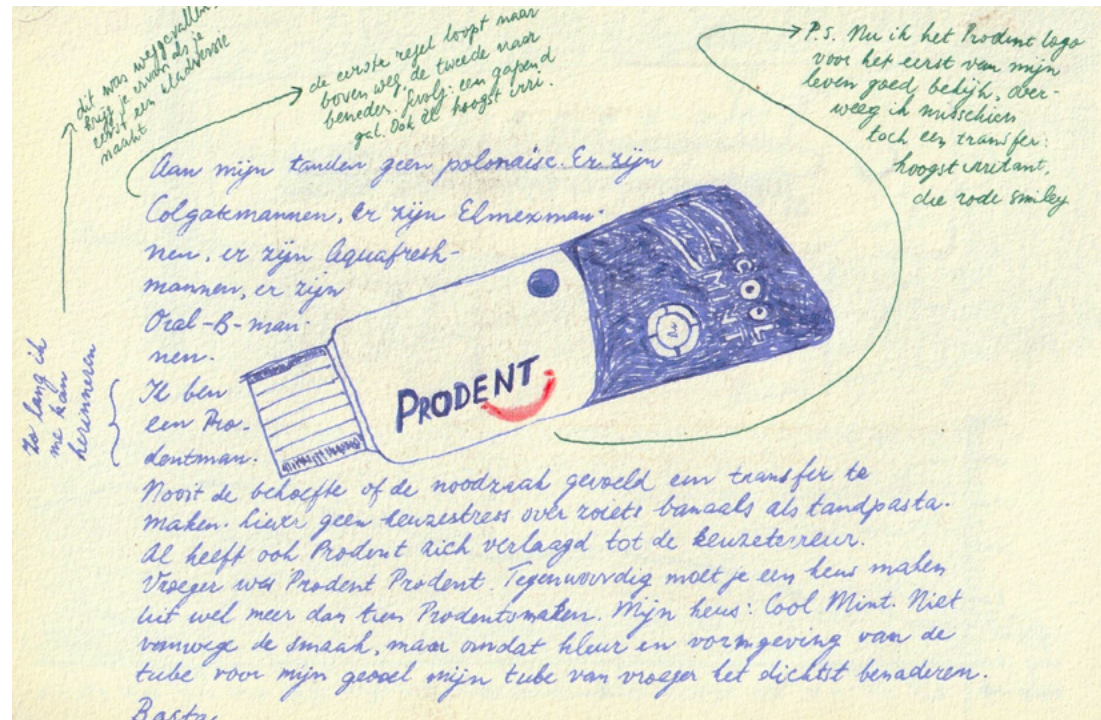 dit was weggevallen.
krijg je ervan als je
eerst een kladversie
maakt
de eerste regel loopt naar
boven weg, de tweede naar
beneden. Gevolg: een gapend
gat. Ook al hoogst irri.
P.S. Nu ik het Prodent logo
voor het eerst van mijn
leven goed bekijk, over-
weeg ik misschien
toch een transfer:
hoogst irritant,
die rode smiley
Aan mijn tanden geen polonaise. Er zijn
Colgatemannen, er zijn Elmexman-
nen, er zijn Aquafresh-
mannen, er zijn
Oral-B-man-
nen.
Ik ben
een Pro-
dentman.
zo lang ik
me kan
herinneren
PRODENT
COOL
MINT
Nooit de behoefte of de noodzaak gevoeld een transfer te
maken. Liever geen keuzestress over zoiets banaals als tandpasta.
Al heeft ook Prodent zich verlaagd tot de keuzeterreur.
Vroeger was Prodent Prodent. Tegenwoordig moet je een keus maken
uit wel meer dan tien Prodentsmaken. Mijn keus: Cool Mint. Niet
vanwege de smaak, maar omdat kleur en vormgeving van de
tube voor mijn gevoel mijn tube van vroeger het dichtst benaderen.
Basta.